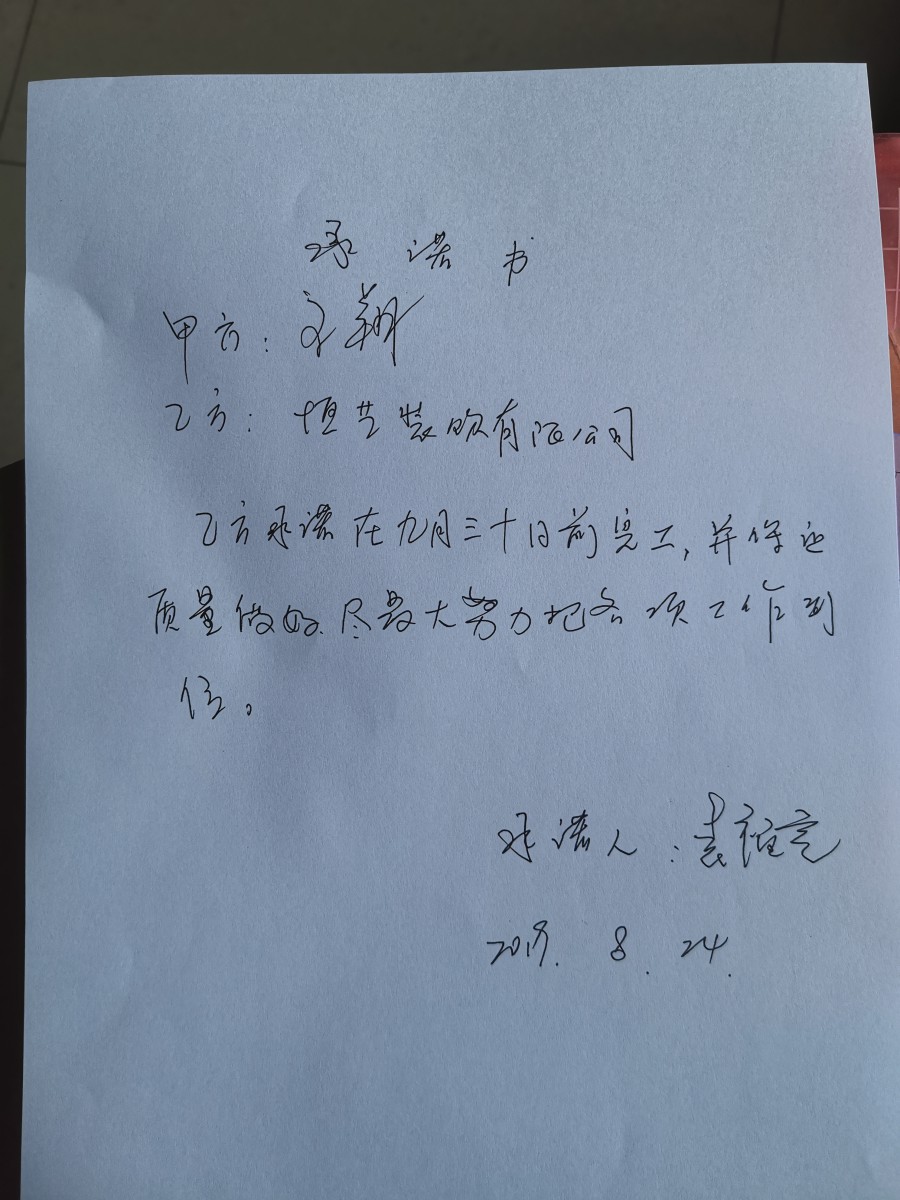 承诺书
甲方：文翔
乙方：恒艺装饰有限公司
乙方承诺在九月三十日前完工，并保证
质量做好.尽最大努力把各项工作到
位。
承诺人：袁
2019. 8. 24.